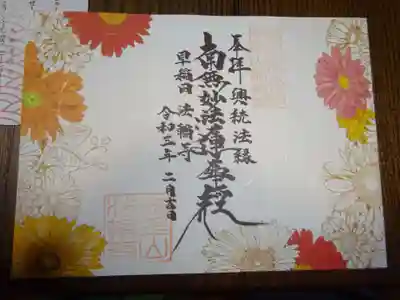 奉拝 興統法縁
南無妙法蓮華経
早稲田 法輪寺
令和三年 二月吉日